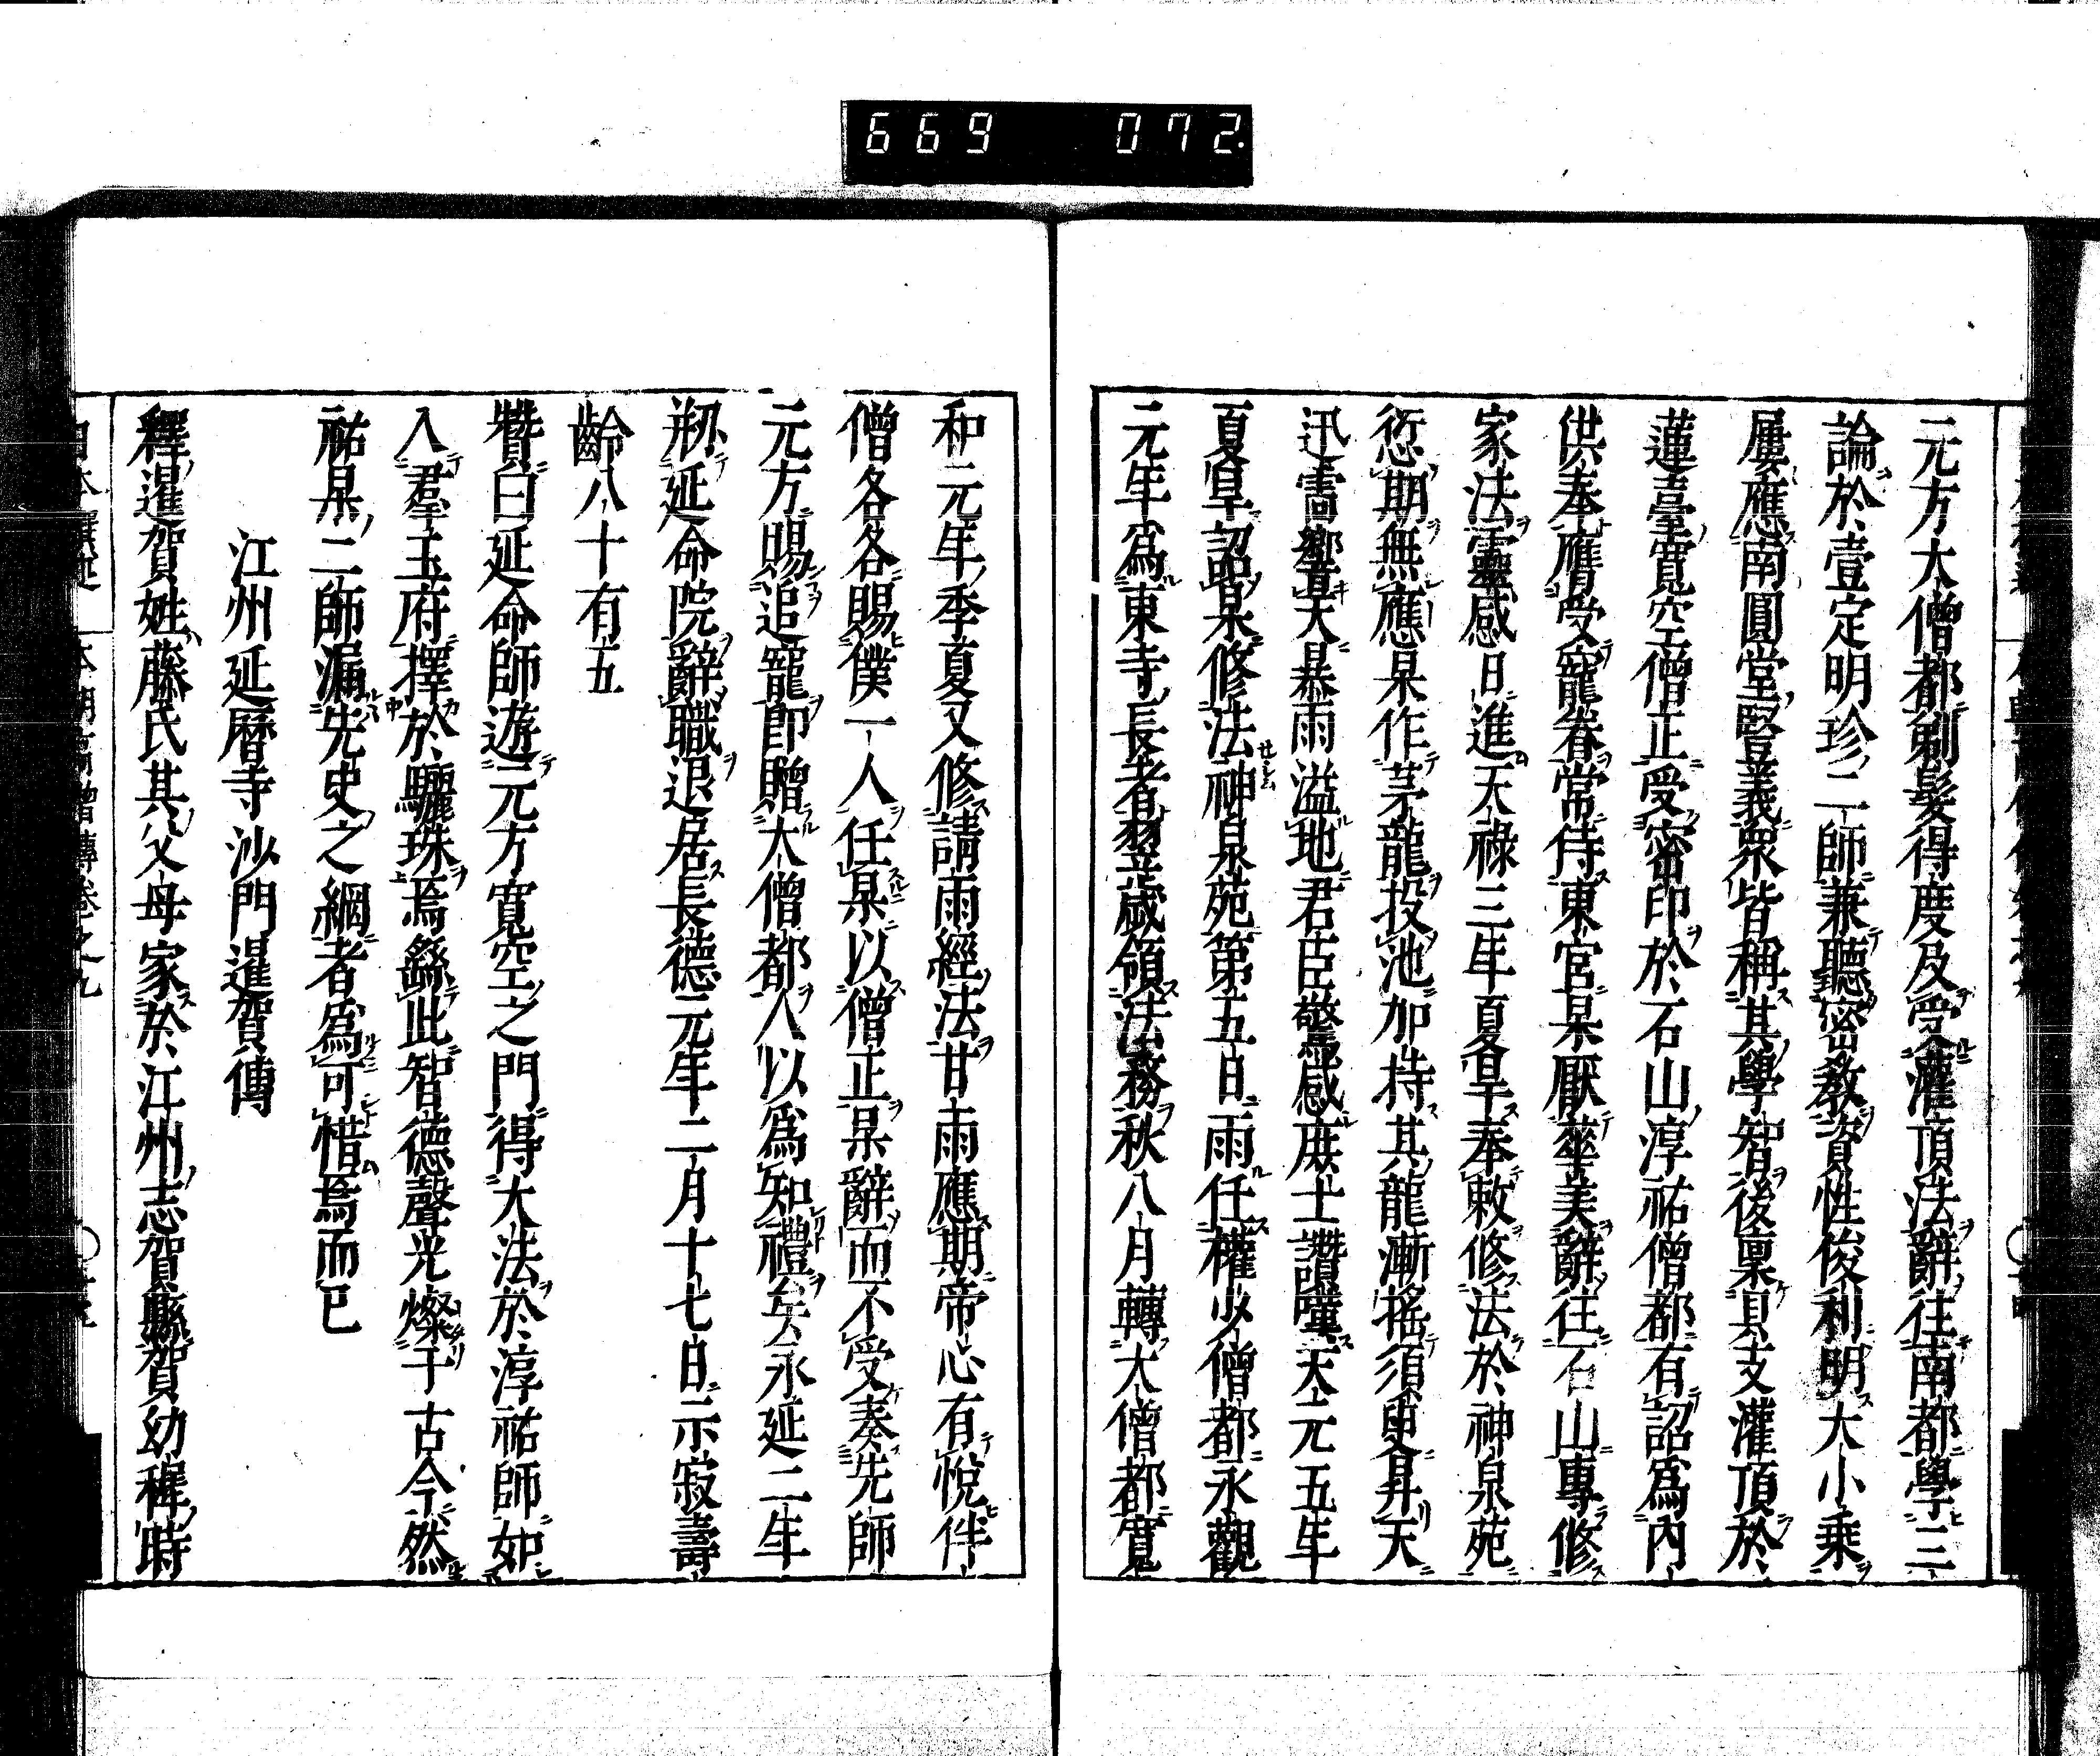 669 072.
元方大僧都剃髮得度及受灌頂法辭往南都學三
論於壹定明珍二師兼聽密教資性俊利明大小乗
屢應南圓堂豎義衆皆稱其學智後稟具支灌頂於
蓮臺寬空僧正受密印於石山淳祐僧都有詔爲内
供奉膺受寵眷常侍東宮杲厭華美辭往石山專修
家法靈感日進天祿三年夏旱奉敕修法於神泉苑
愆期無應杲作茅龍投池加持其龍漸搖須臾昇天
迅雷響天暴雨溢地君臣驚感庶士讚嘆天元五年
夏旱詔杲修法神泉苑第五日雨任權少僧都永觀
元年爲東寺長者翌歲領法務秋八月轉大僧都寬
和元年季夏又修請雨經法甘雨應期帝心有悅伴
僧各各賜僕一人任杲以僧正杲辭而不受奏先師
元方賜追寵卽贈大僧都人以爲知禮矣永延二年
剏延命院辭職退居長德元年二月十七日示寂壽
齡八十有五
贊曰延命師遊元方寬空之門得大法於淳祐師如
入羣玉府擇於驪珠焉繇此智德聲光燦于古今然
祐杲二師漏先史之網者爲可惜焉而已
江州延曆寺沙門暹賀傳
釋暹賀姓藤氏其父母家於江州志賀縣賀幼穉時
本朝高僧傳卷之九